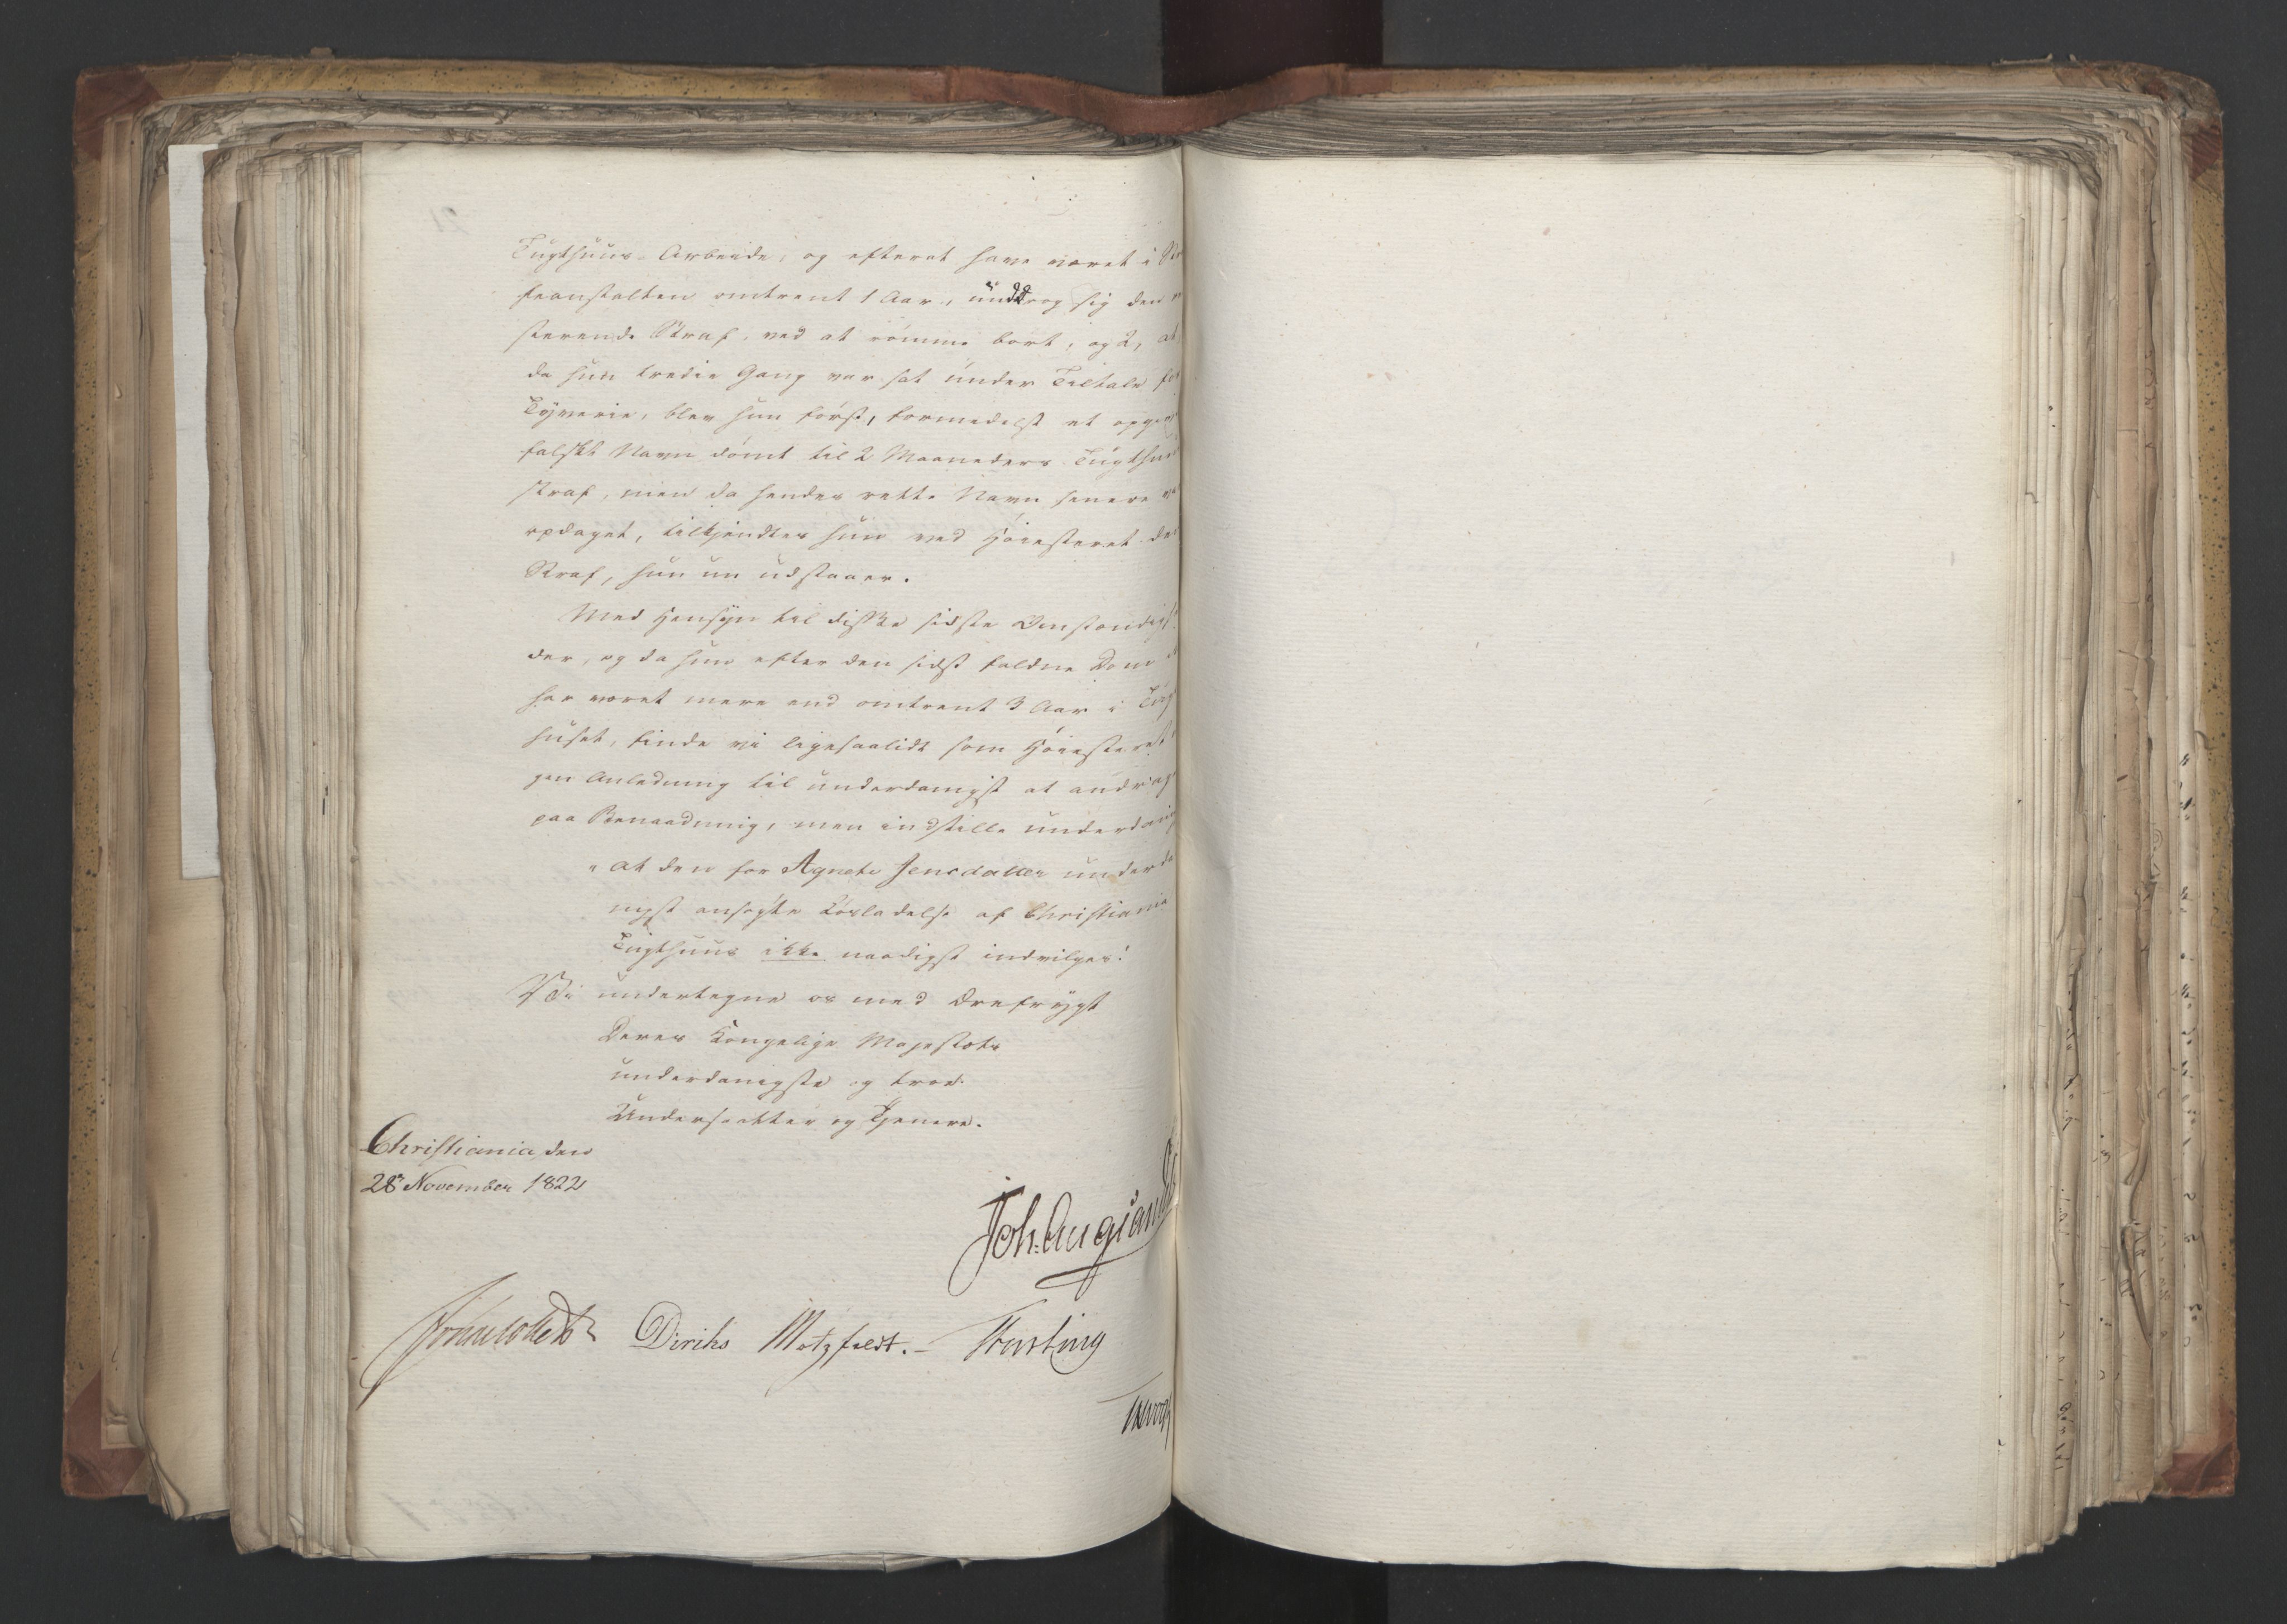 Tugthuus-Arbeide, og efterat have været i
feanstalten omtrent 1 Aar, unddrog sig den
sterende Straf, ved at römme bort, og 2, at
da hun tredie Gang var sat under Tiltale for
Tyverie, blev hun först, formedelst et
falskt Navn dömt til 2 Maaneders Tugthuus
straf, men da hendes rette Navn senere
opdaget, tilkjendtes hun ved Höiesteret den
Straf, hun nu udstaaer.
Med Hensyn til disse sidste Omstændig
der, og da hun efter den sidst faldne Dom
har været mere end omtrent 3 Aar i Tugt
huset, finde vi ligesaalidt som Höiesteret
gen Anledning til underdanigst at andrage
paa Benaadning, men indstille underdanig
"at den for Agnethe Jensdatter underda
nigst ansögte Lösladelse af Christiania
Tugthuus ikke naadigst indvilges."
Vi undertegne os med Ærefrygt
Deres Kongelige Majestæts
underdanigste og troe
Undersaatter og Tjenere.
Christiania, den
28 November 1822
Joh: Aug: Sand
Jonas Collett Diriks Motzfeldt. – Fasting